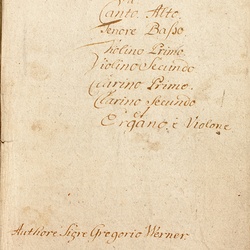 Canto. Alto.
Tenore Basso
Violino Primo.
Violino Secundo
Clarino Primo.
Clarino Secundo
è
Organo, è Violone
Authore Sigre Gregorio Werner.